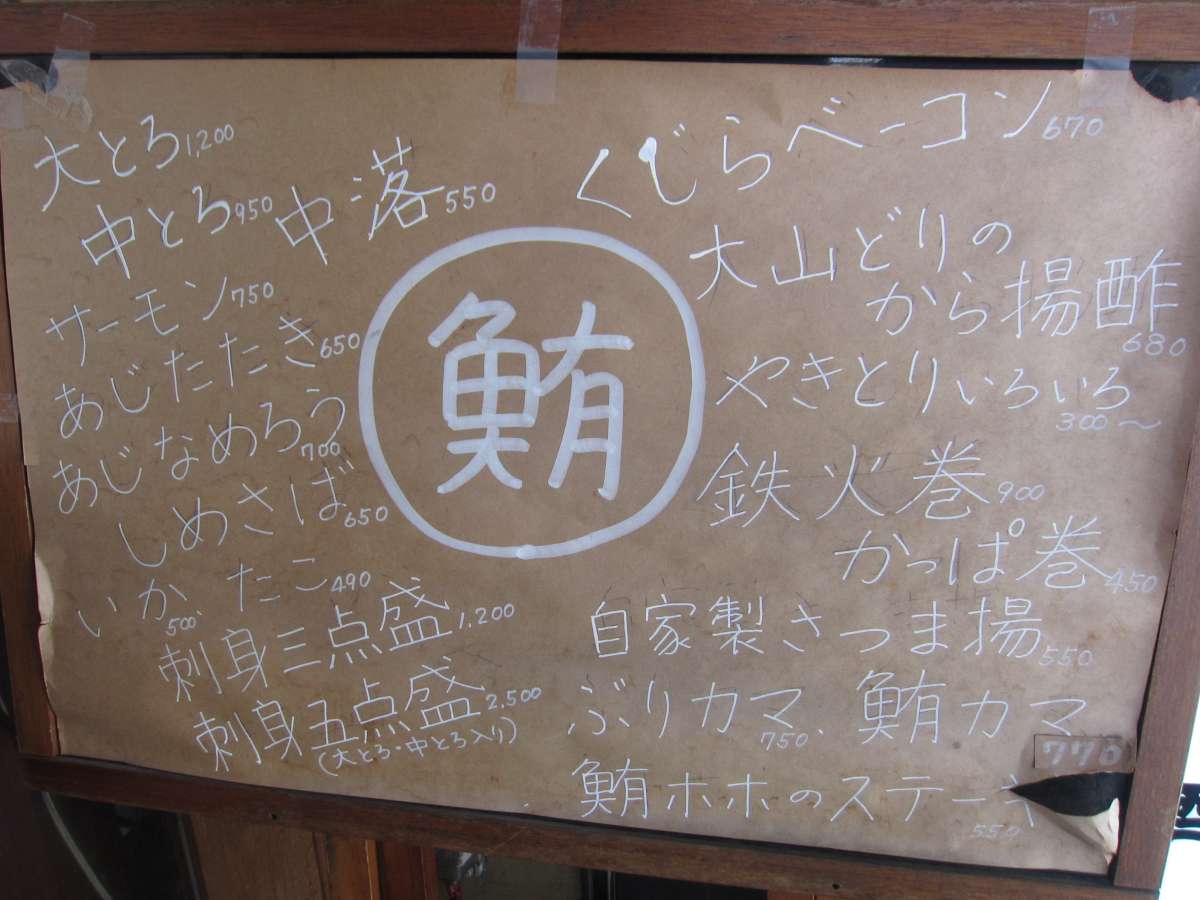 大とろ1,200
中とろ950
中落550
サーモン750
あじたたき650
あじなめろう700
しめさば650
いか500 たこ490
刺身三点盛1,200
刺身五点盛2,500
(大とろ・中とろ入り)
鮪
くじらベーコン670
大山どりの
から揚酢680
やきとりいろいろ
300～
鉄火巻900
かっぱ巻450
自家製さつま揚550
ぶりカマ750、鮪カマ
770
鮪ホホのステーキ
550